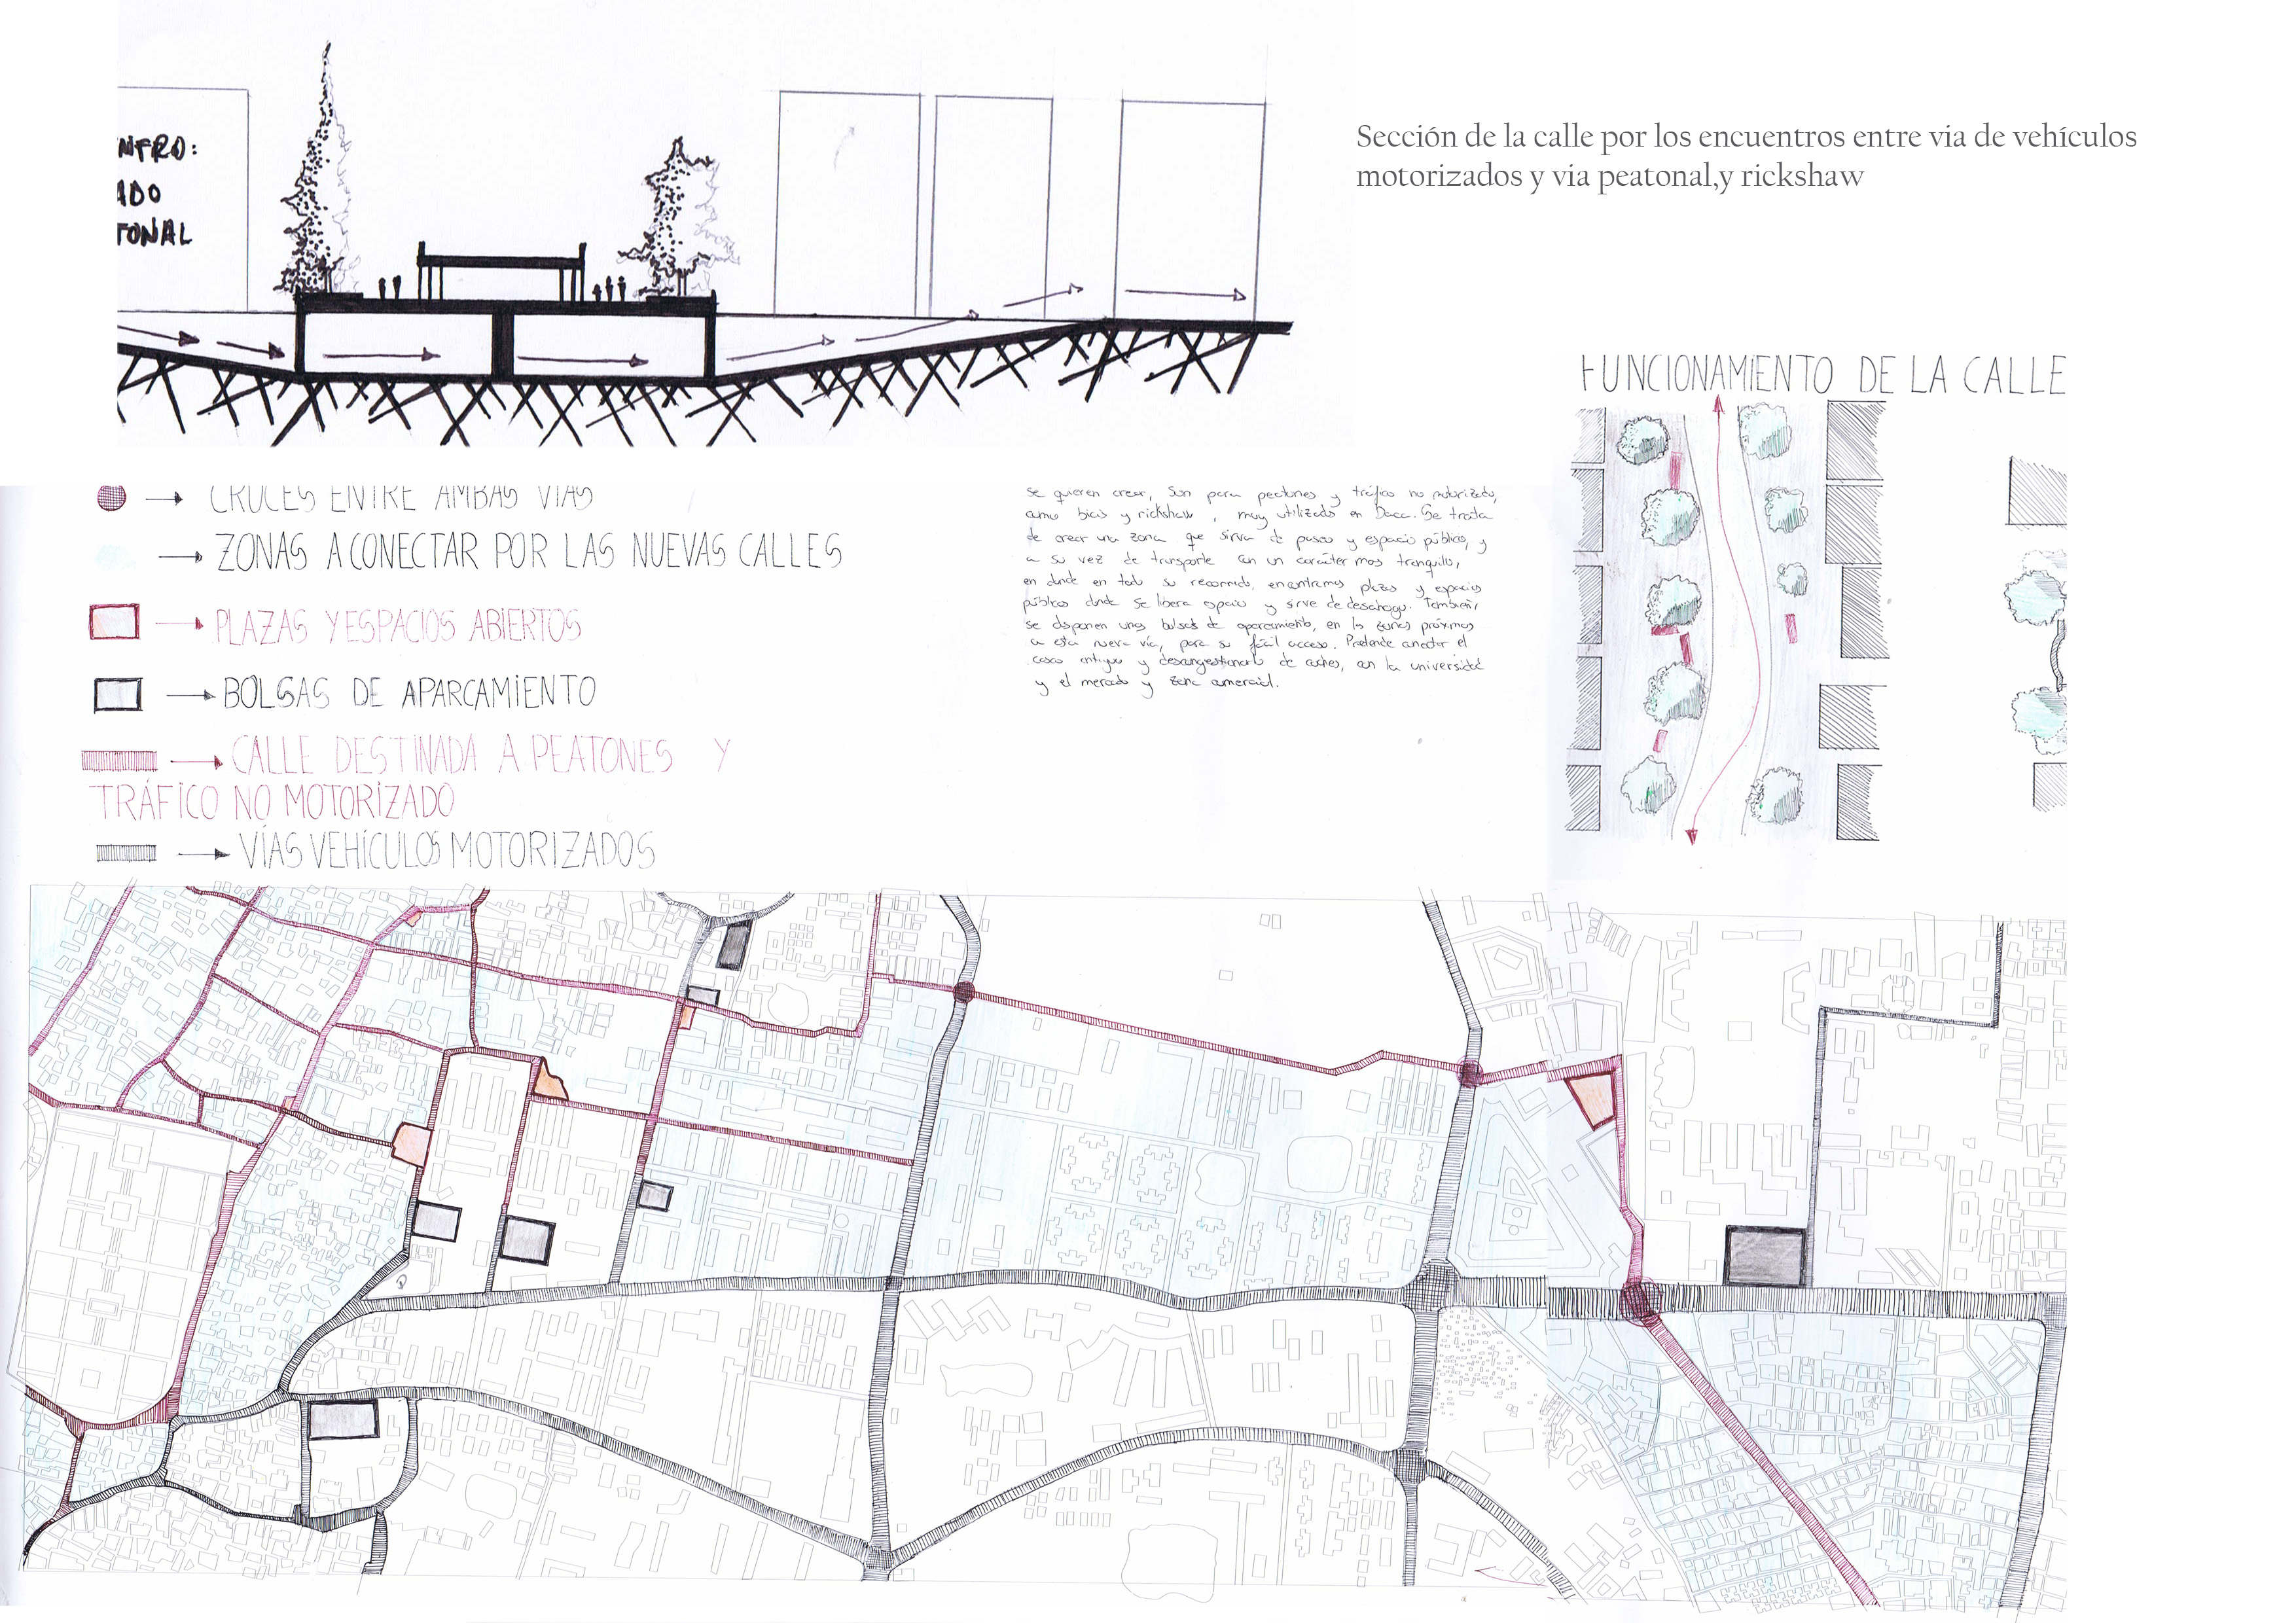 NFRO:
ADO
TONAL
Sección de la calle por los encuentros entre via de vehículos
motorizados y via peatonal,y rickshaw
FUNCIONAMIENTO DE LA CALLE
CRUCES ENTRE AMBAS VIAS
ZONAS A CONECTAR POR LAS NUEVAS CALLES
PLAZAS Y ESPACIOS ABIERTOS
BOLSAS DE APARCAMIENTO
CALLE DESTINADA A PEATONES Y
TRÁFICO NO MOTORIZADO
VÍAS VEHÍCULOS MOTORIZADOS
se quieren crear, son para peatones y tráfico no motorizado,
como bicis y rickshaw, muy utilizado en Dacca. Se trata
de crear una zona que sirva de paseo y espacio público, y
a su vez de transporte con un carácter mas tranquilo,
en donde en todo su recorrido, encontremos plazas y espacios
públicos donde se libera espacio y sirve de desahogo. También,
se disponen unas bolsas de aparcamiento, en las zonas próximas
a esta nueva vía, para su fácil acceso. Pretende conectar el
casco antiguo y descongestionarlo de coches, con la universidad
y el mercado y zona comercial.